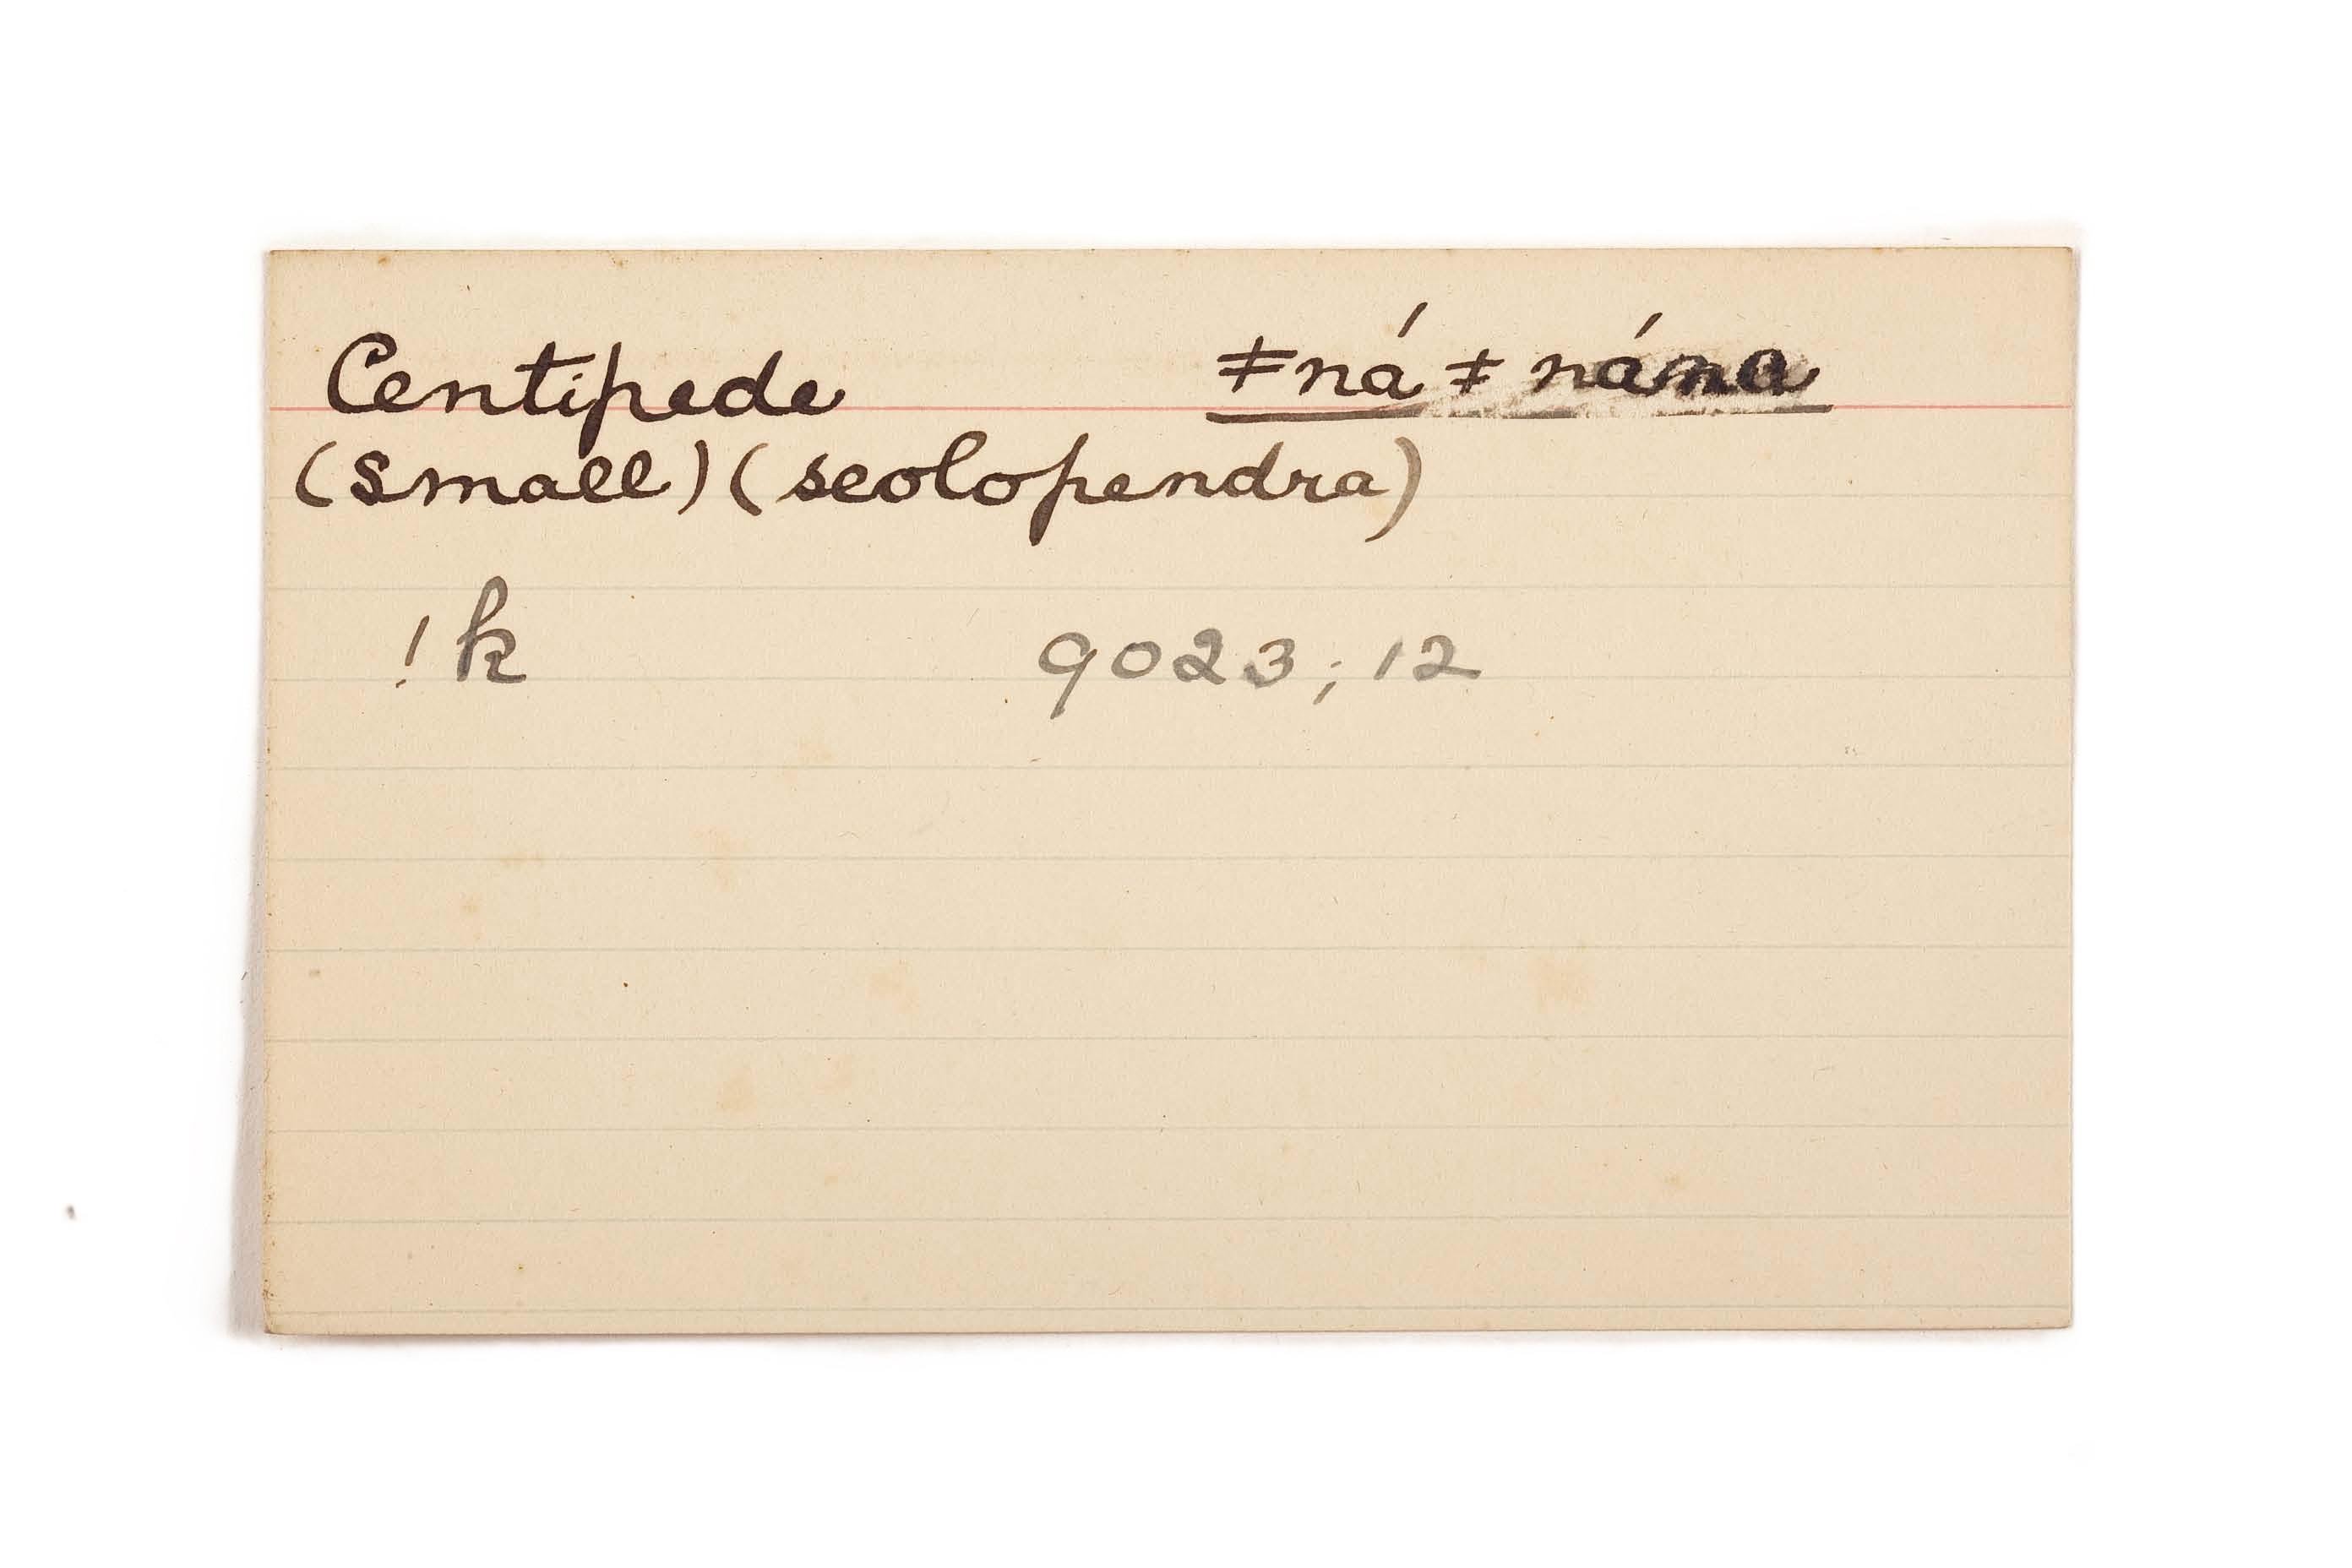 Centipede ǂná ǂ nána
(small) (scolopendra)
!k 9023; 12